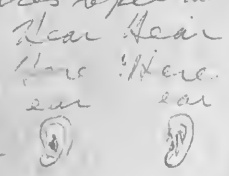 Hear Hear
Here Here.
ear ear